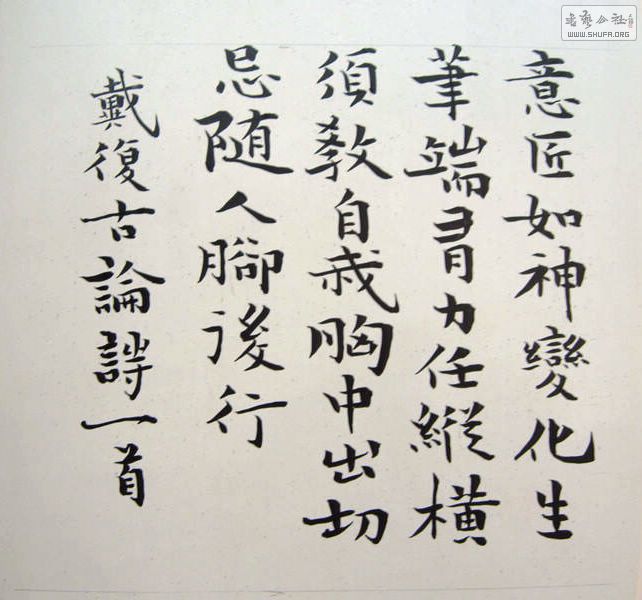 意匠如神變化生
筆端有力任縱橫
須教自我胸中出切
忌随人腳後行
戴復古論詩一首
書藝公社
WWW.SHUFA.ORG